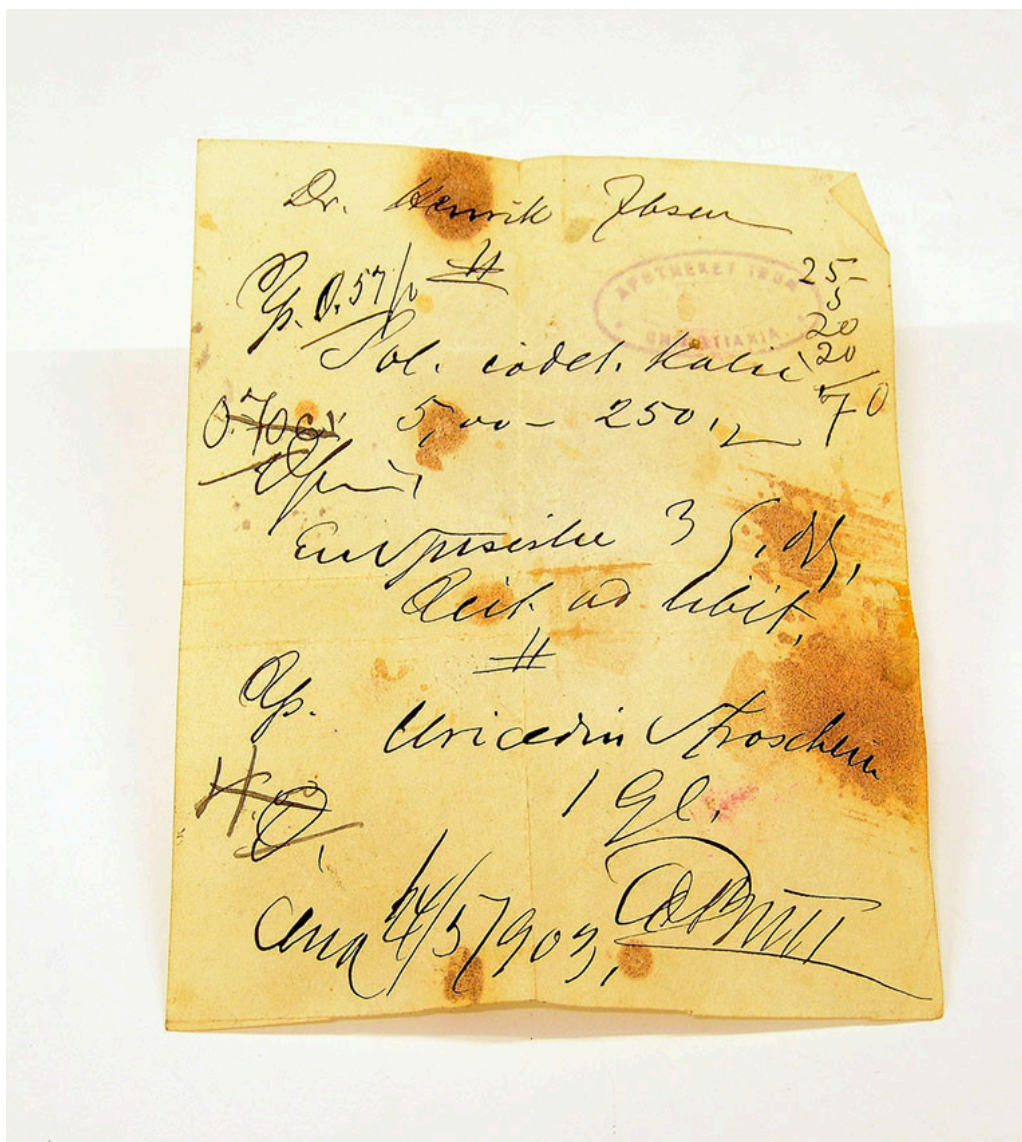 Dr. Henrik Ibsen
Rp. 0.57/0
APOTHEKET IBON
CHRISTIANIA
25-
5
20
20
70
Sol. iodet. Kalii
5,00 - 250,
En spiseske 3 g. dgl.
Reit. ad libit.
Rp. Uricedin Stroschein
1 Gl.
Chra 14/5/903,